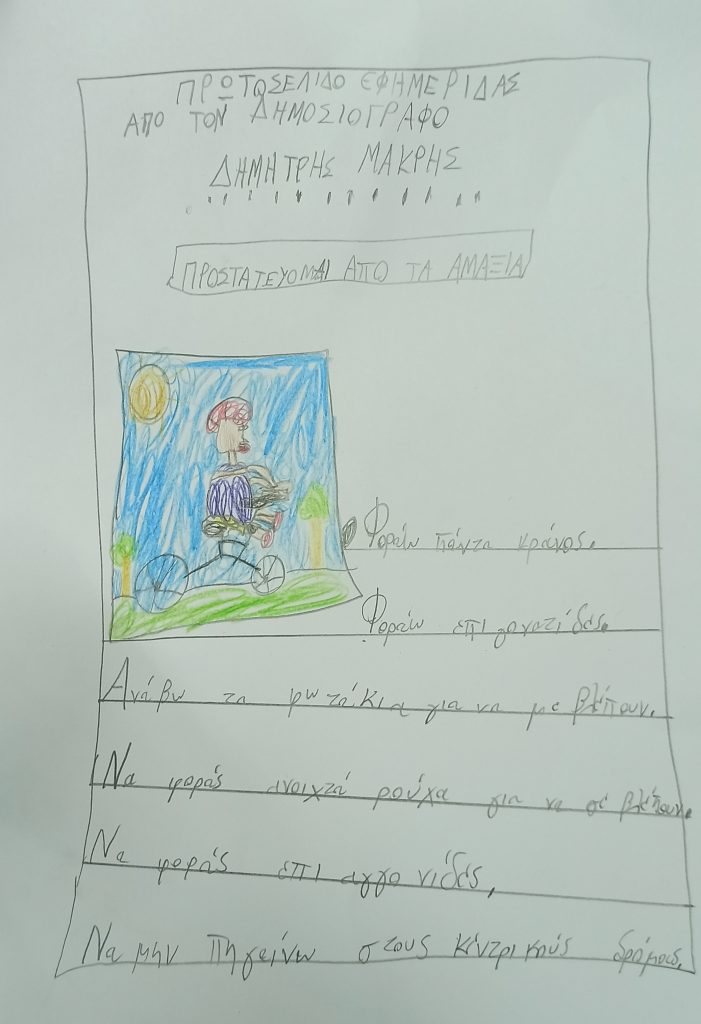 ΠΡΩΤΟΣΕΛΙΔΟ ΕΦΗΜΕΡΙΔΑΣ
ΑΠΟ ΤΟΝ ΔΗΜΟΣΙΟΓΡΑΦΟ
ΔΗΜΗΤΡΗΣ ΜΑΚΡΗΣ
ΠΡΟΣΤΑΤΕΥΟΜΑΙ ΑΠΟ ΤΑ ΑΜΑΞΙΑ
Φοράω πάντα κράνος.
Φοράω επιγονατίδές.
Ανάβω τα φωτάκια για να με βλέπουν.
Να φοράς ανοιχτά ρούχα για να σέ βλέπουν.
Να φοράς επι αγγονίδές,
Να μην πηγείνω στους κέντρικούς δρόμους.